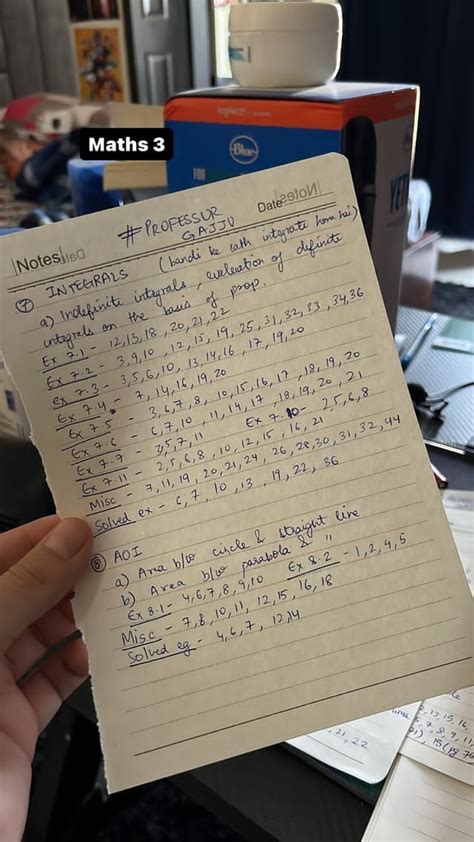 Maths 3
logitech
Blue
FOR
YETI
Notes
Date
Notes
# PROFESSUR
GAJJU
⑦ INTEGRALS (bandi ke sath integrate hona hai)
a) Indefinite integrals, evaluation of definite
integrals on the basis of prop.
Ex 7.1 - 12, 13, 18, 20, 21, 22
Ex 7.2 - 3, 9, 10, 12, 15, 19, 25, 31, 32, 33, 34, 36
Ex 7.3 - 3, 5, 6, 10, 13, 14, 16, 17, 19, 20
Ex 7.4 - 7, 14, 16, 19, 20
Ex 7.5 - 3, 6, 7, 8, 10, 15, 16, 17, 18, 19, 20
Ex 7.6 - 6, 7, 10, 11, 14, 17, 18, 19, 20, 21
Ex 7.7 - 3, 5, 7, 11 Ex 7.10 - 2, 5, 6, 8
Ex 7.11 - 2, 5, 6, 8, 10, 12, 15, 16, 21
Misc - 7, 11, 19, 20, 21, 24, 26, 28, 30, 31, 32, 44
Solved ex - 6, 7, 10, 13, 19, 22, 36
⑧ AOI
a) Area b/w circle & straight line
b) Area b/w parabola & "
Ex 8.1 - 4, 6, 7, 8, 9, 10 Ex 8.2 - 1, 2, 4, 5
Misc - 7, 8, 10, 11, 12, 15, 16, 18
Solved eg - 4, 6, 7, 12, 14
, 21, 22